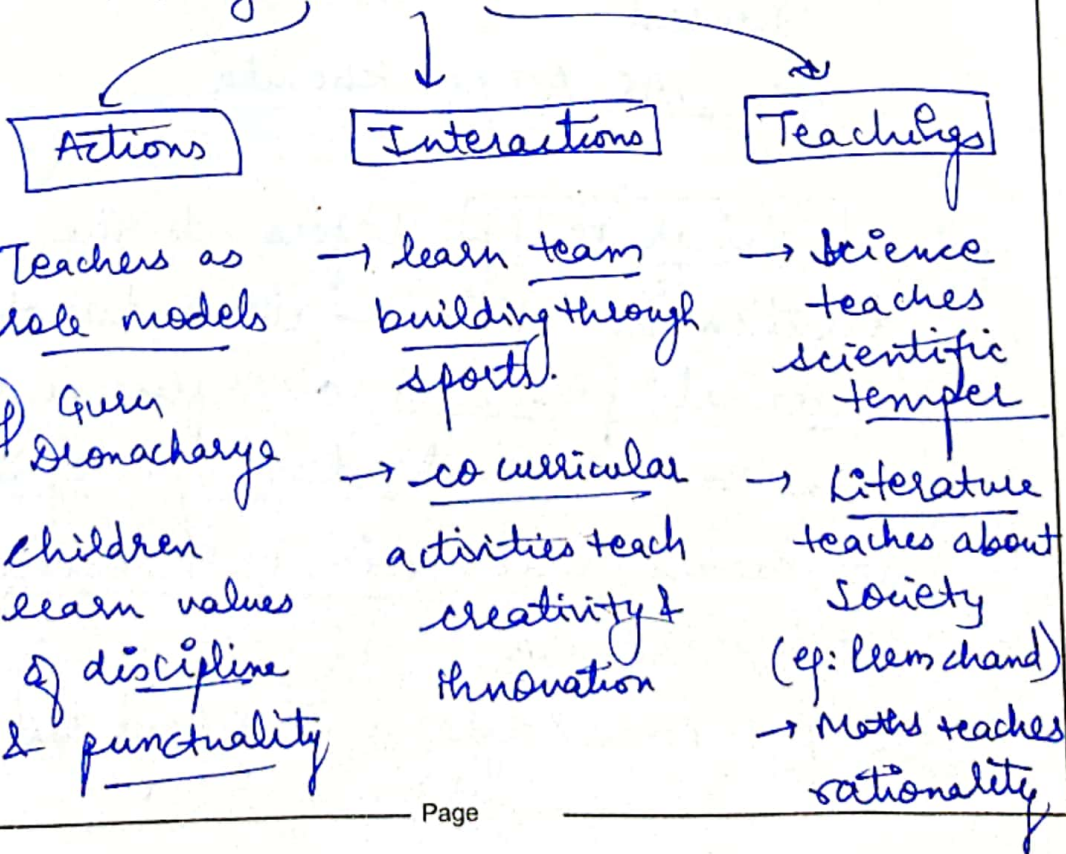 Actions
Teachers as
role models
Guru
Dronacharya
children
learn values
of discipline
& punctuality
Interactions
→ learn team
building through
sports.
→ co curricular
activities teach
creativity &
innovation
Teachings
→ Science
teaches
scientific
temper
→ Literature
teaches about
society
(eg: Premchand)
→ Maths teaches
rationality
Page